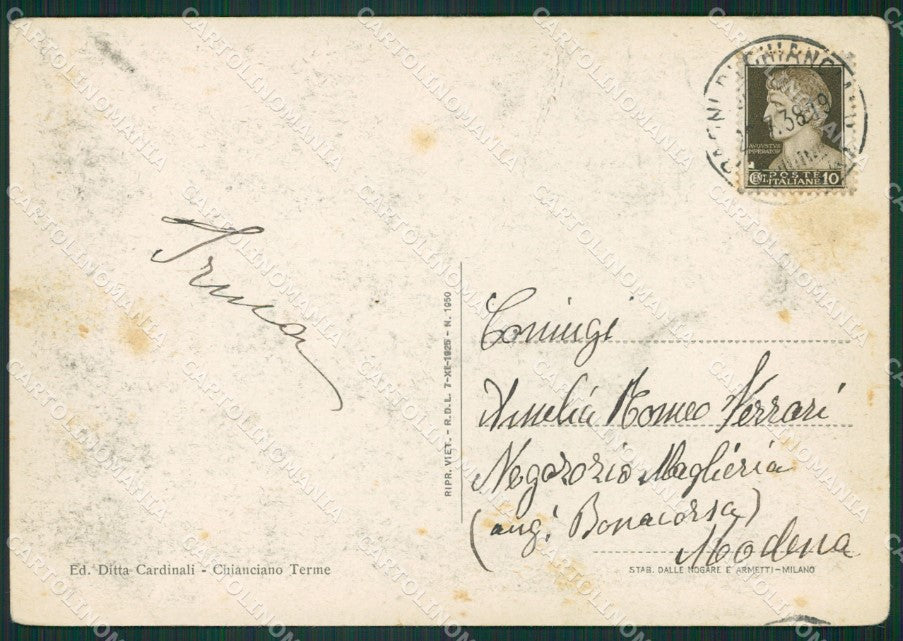 BAGNI DI CHIANCIANO
38
AVGVSTVS
IMPERATOR
POSTE
ITALIANE 10
Irma
RIPR. VIET. - R.D.L. 7-XI-1925 - N. 1950
Coniugi
Amelia Romeo Ferrari
Negozio Maglieria
(ang. Bonacorsa)
Modena
Ed. Ditta Cardinali - Chianciano Terme
STAB. DALLE NOGARE E ARMETTI - MILANO
CARTOLINOMANIA